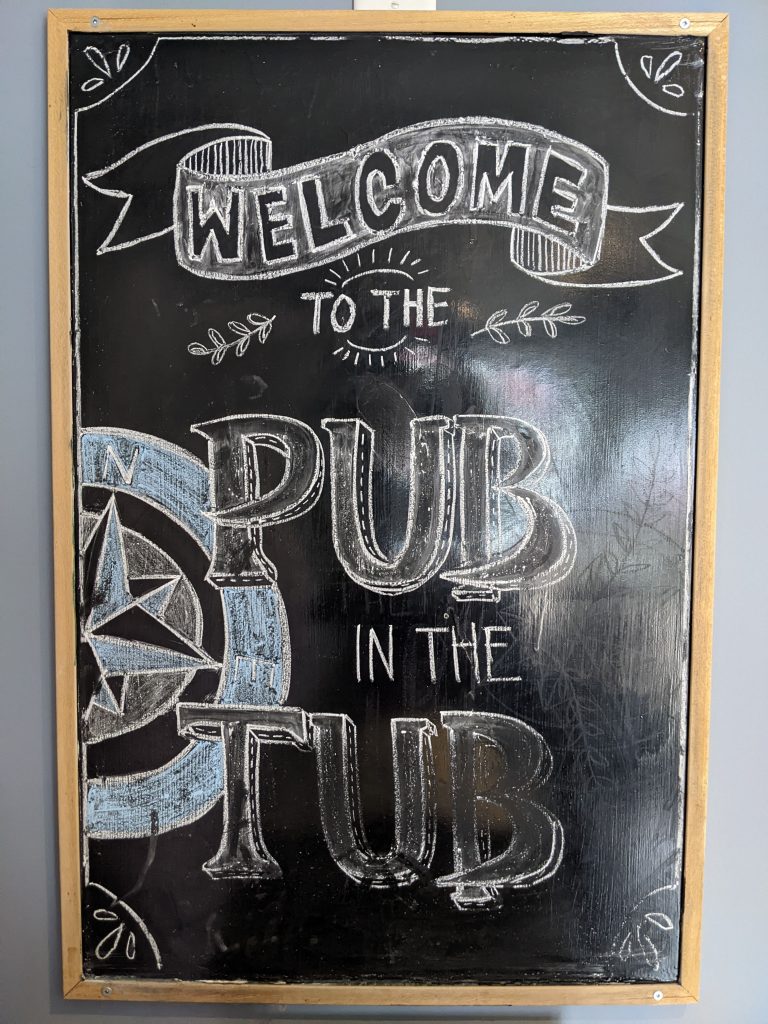 WELCOME
TO THE
PUB
IN THE
TUB
N
E